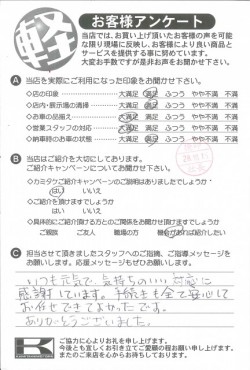 軽
お客様アンケート
当店では、お買い上げ頂いたお客様の声を可能
な限り現場に反映し、お客様により良い商品と
サービスを提供する事に努めています。
大変お手数ですが是非お声をお聞かせ下さい。
A 当店を実際にご利用になった印象をお聞かせ下さい。
◇店の印象 大満足 満足 ふつう やや不満 不満
◇店内・展示場の清掃 大満足 満足 ふつう やや不満 不満
◇お車の品揃え 大満足 満足 ふつう やや不満 不満
◇営業スタッフの対応 大満足 満足 ふつう やや不満 不満
◇納車時のお車の状態 大満足 満足 ふつう やや不満 不満
B 当店はご紹介を大切にしております。
ご紹介キャンペーンについてお聞かせ下さい。
◇カミタケご紹介キャンペーンのご説明はありましたでしょうか
はい いいえ
◇ご紹介を頂けますでしょうか
はい いいえ
◇具体的にご紹介頂ける方とのご関係をお聞かせ頂けますでしょうか
ご親戚 ご友人 職場の方 機会があれば紹介したい
C 担当させて頂きましたスタッフへのご指摘、ご指導メッセージを
お願いします。応援メッセージもぜひお願いします。
いつも元気で、気持ちのいい対応に
感謝しています。手続きも全て安心して
お任せできてよかったです。
ありがとうございました。
K
ご協力に心よりお礼を申し上げます。
今後とも宜しくお引き立てご愛顧の程お願い申し上げます。
またのご来店を心からお待ちしております。